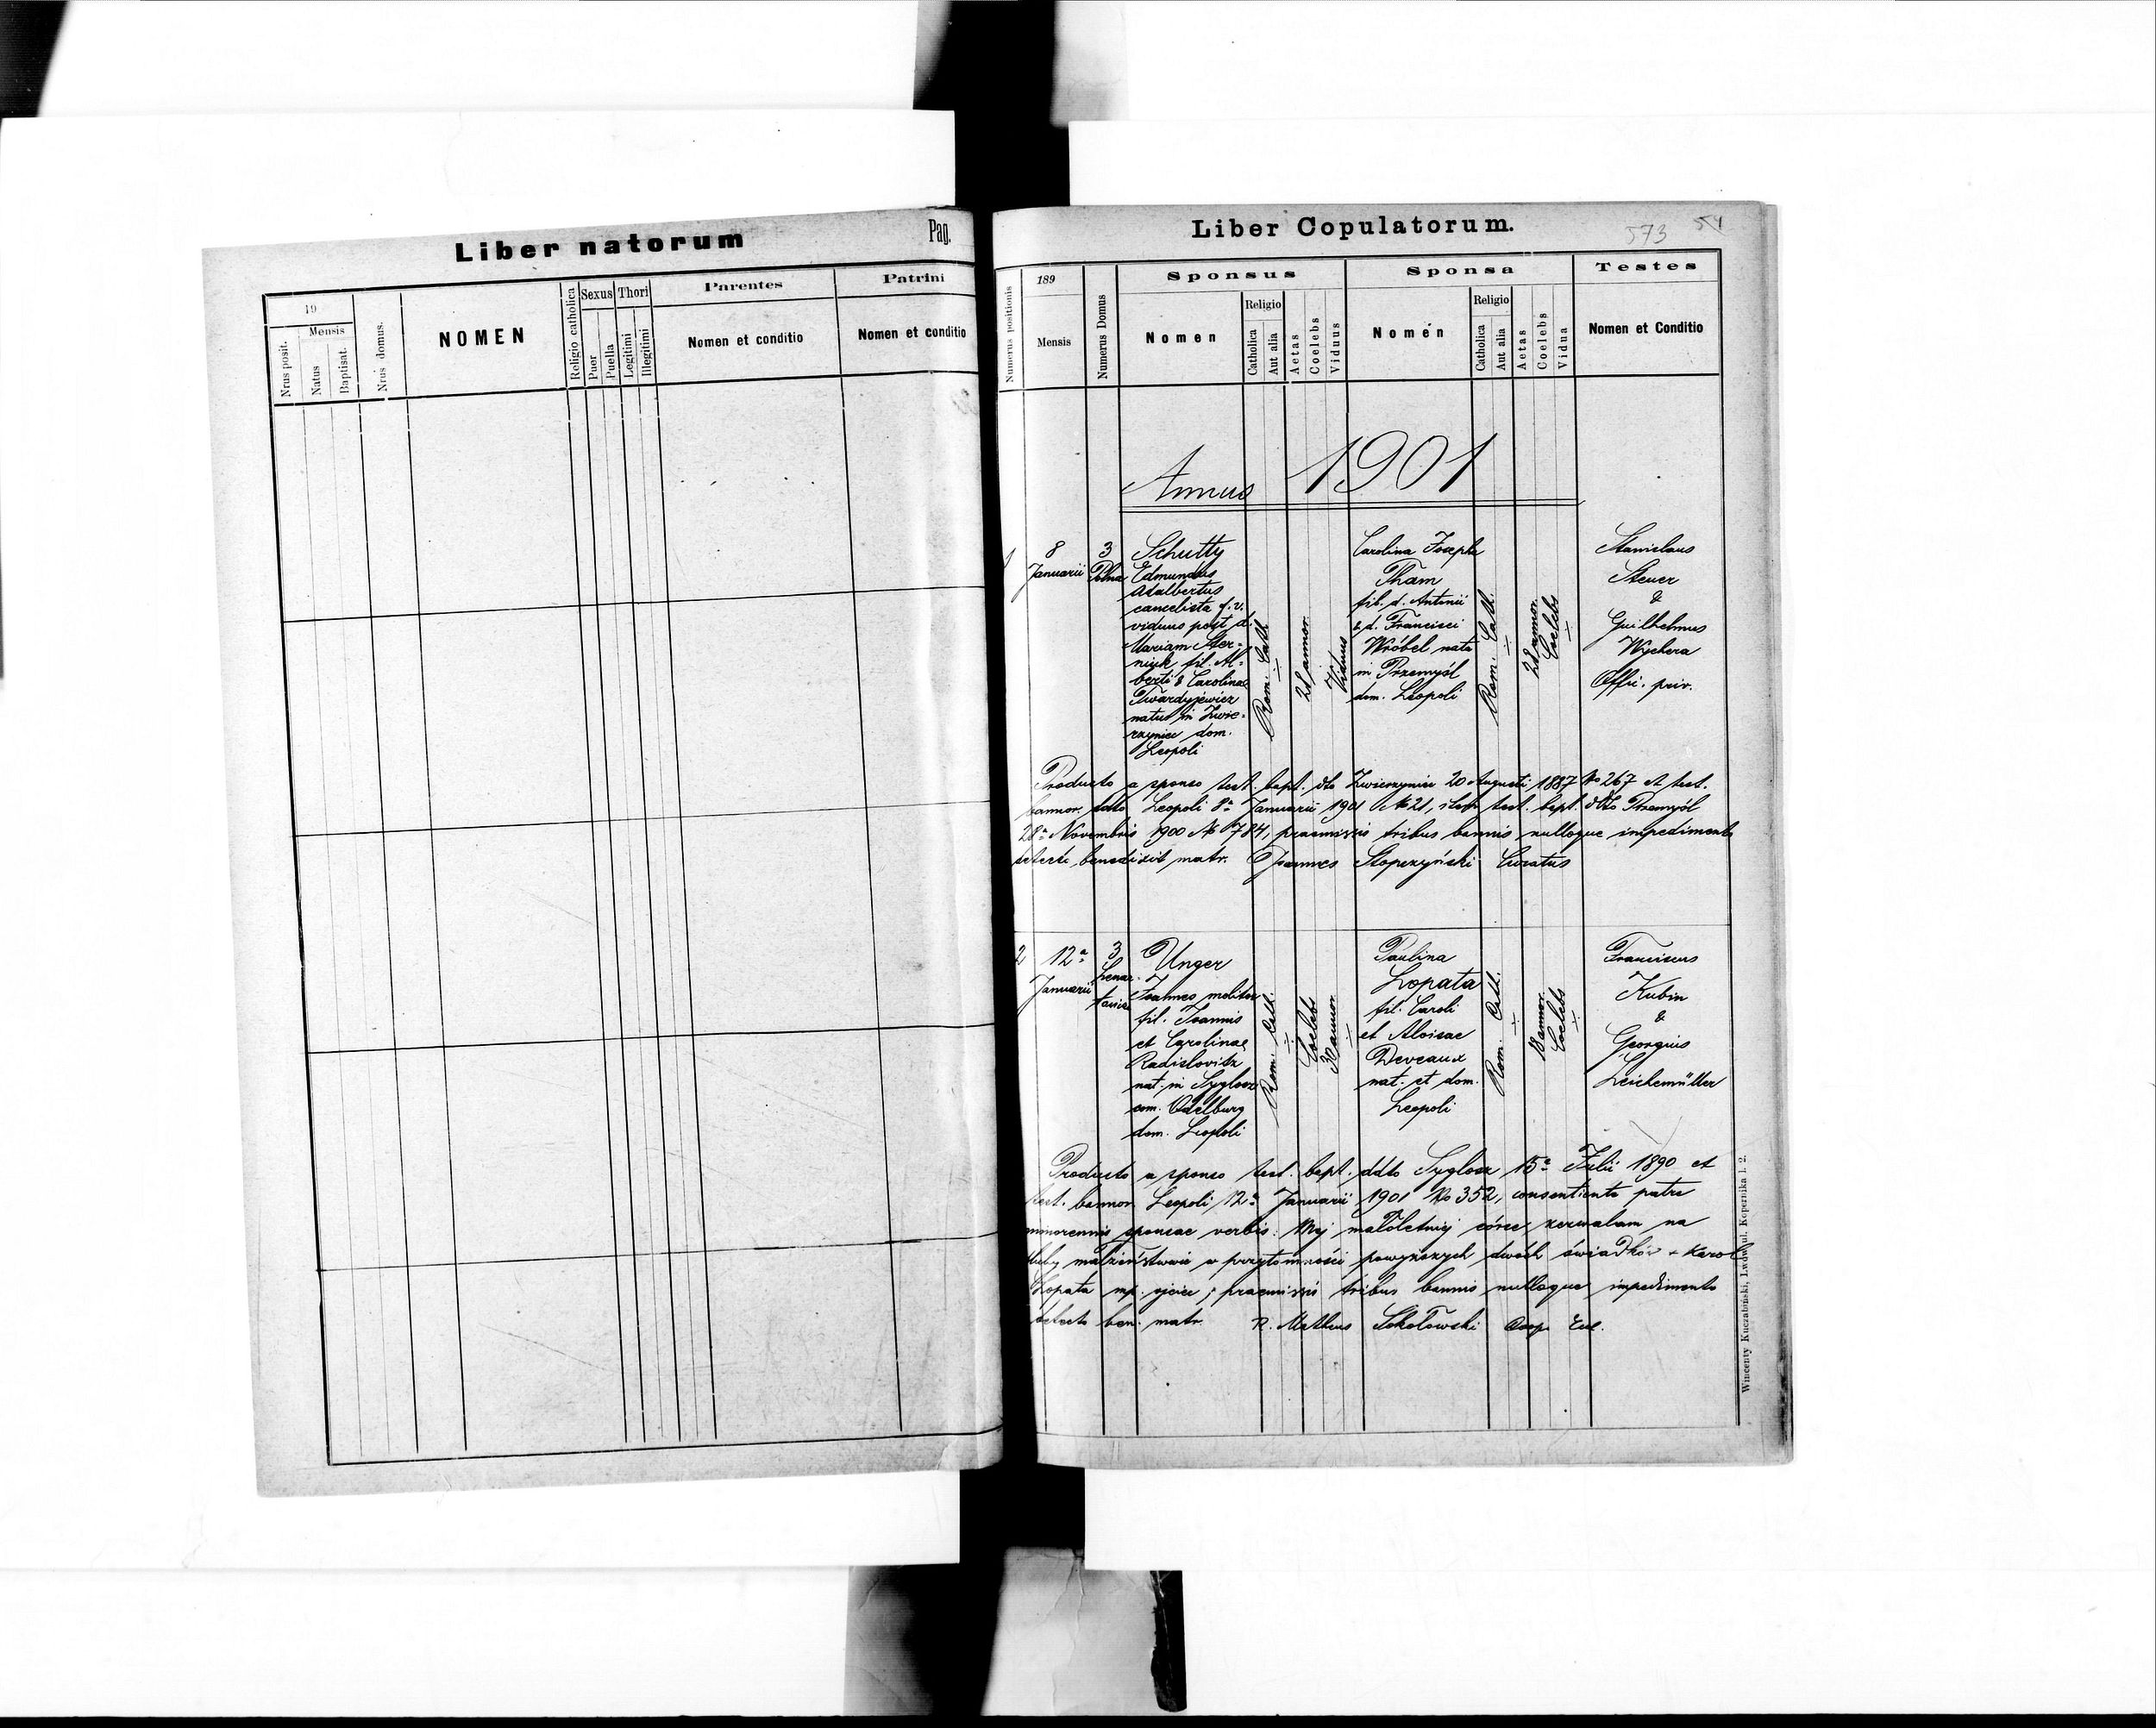 Liber natorum
Pag.
19
Mensis
Nrus posit.
Natus
Baptisat.
Nrus domus.
NOMEN
Religio catholica
Sexus
Puer
Puella
Thori
Legitimi
Illegitimi
Parentes
Nomen et conditio
Patrini
Nomen et conditio
Liber Copulatorum.
573
54
Numerus positionis
189
Mensis
Numerus Domus
Sponsus
Nomen
Religio
Catholica
Aut alia
Aetas
Coelebs
Viduus
Sponsa
Nomen
Religio
Catholica
Aut alia
Aetas
Coelebs
Vidua
Testes
Nomen et Conditio
Annus 1901
1
8
Januarii
3
Polna
Schutty
Edmundus
Adalbertus
cancelista f. v.
viduus post d.
Mariam Ster-
niuk fil. Al-
berti & Carolinae
Twardyjewicz
natus in Zwie-
rzyniec dom.
Leopoli
Rom. Cath.
28 annor.
Viduus
Carolina Josepha
Tham
fil. d. Antonii
& d. Francisci
Wróbel nata
in Przemyśl
dom. Leopoli
Rom. Cath.
28 annor.
Coelebs
Stanislaus
Steuer
&
Guilhelmus
Wychera
Offic. priv.
Producto a sponso test. bapt. dto Zwierzyniec 20 Augusti 1887 No 267 et test.
bannor. ddto Leopoli 8a Januarii 1901 No 21, item test. bapt. ddto Przemyśl
28a Novembris 1900 No 784, praemissis tribus bannis nulloque impedimento
detecto benedixit matr. Joannes Stopczyński Curatus
2
12a
Januarii
3
Lenar-
towicza
Unger
Joannes molitor
fil. Joannis
et Carolinae
Radislovitz
nat. in Syglosz
com. Odelburg
dom. Leopoli
Rom. Cath.
Coelebs
30 annor.
Paulina
Łopata
fil. Caroli
et Aloisae
Deveaux
nat. et dom.
Leopoli
Rom. Cath.
18 annor.
Coelebs
Franciscus
Kubin
&
Georgius
Leichemüller
Producto a sponso test. bapt. ddto Syglosz 15a Julii 1890 et
test. bannor. Leopoli 12a Januarii 1901 No 352, consentiente patre
minorennis sponsae verbis: Mej małoletniej córce zezwalam na
śluby małżeństwa w przytomności powyższych dwóch świadków + Karol
Łopata mp. ojciec; praemissis tribus bannis nulloque impedimento
detecto ben. matr. R. Matheus Sokołowski Coop. Ecl.
Wincenty Kuczabiński, Lwów, ul. Kopernika l. 2.